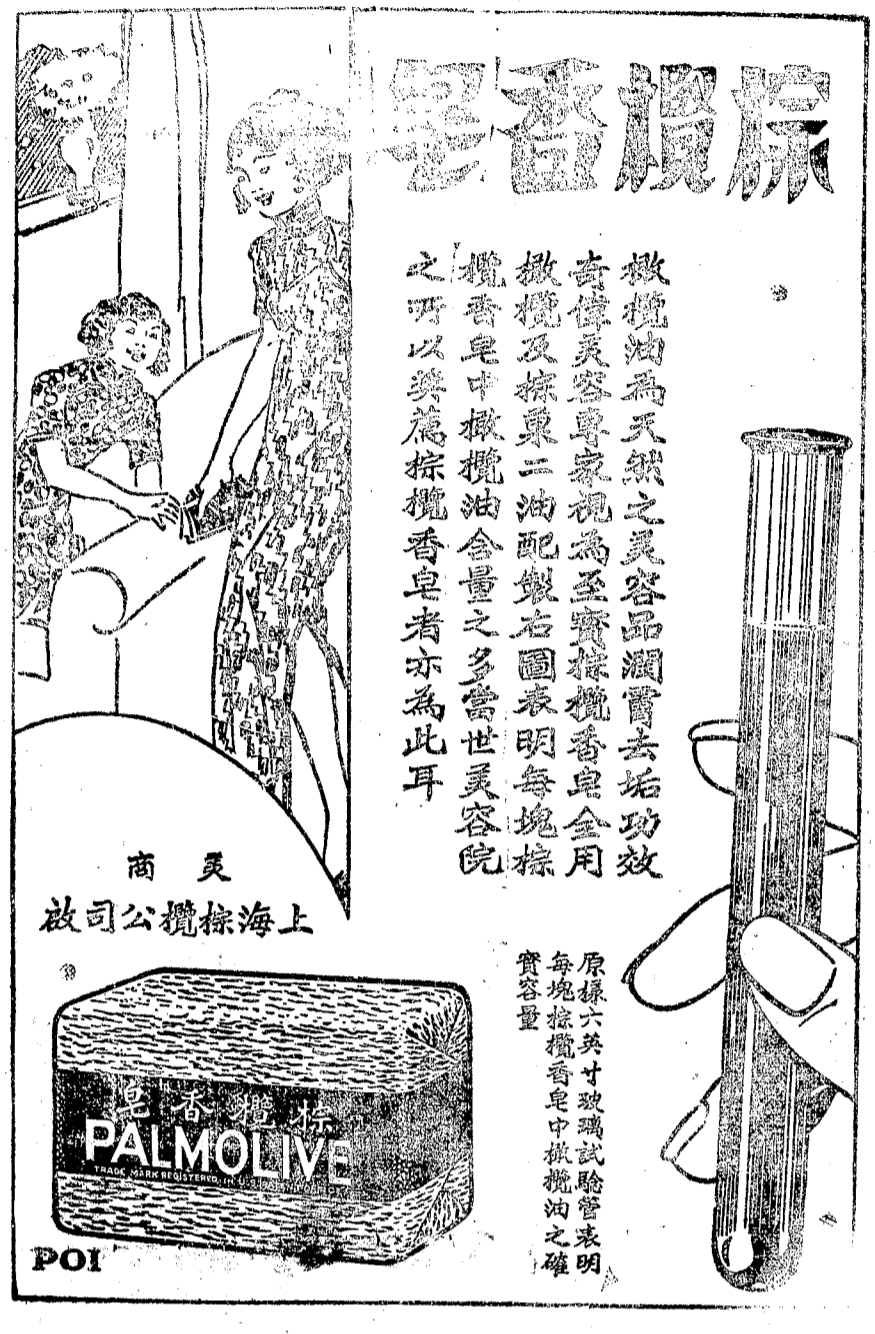 棕欖香皂
橄欖油為天然之美容品潤膚去垢功效
奇偉美容專家視為至寶棕欖香皂全用
橄欖及棕果二油配製右圖表明每塊棕
欖香皂中橄欖油含量之多當世美容院
之所以樂薦棕欖香皂者亦為此耳
原樣六英寸玻璃試驗管表明
每塊棕欖香皂中橄欖油之確
實容量
美商
上海棕欖公司啟
棕欖香皂
PALMOLIVE
TRADE MARK REGISTERED
POI